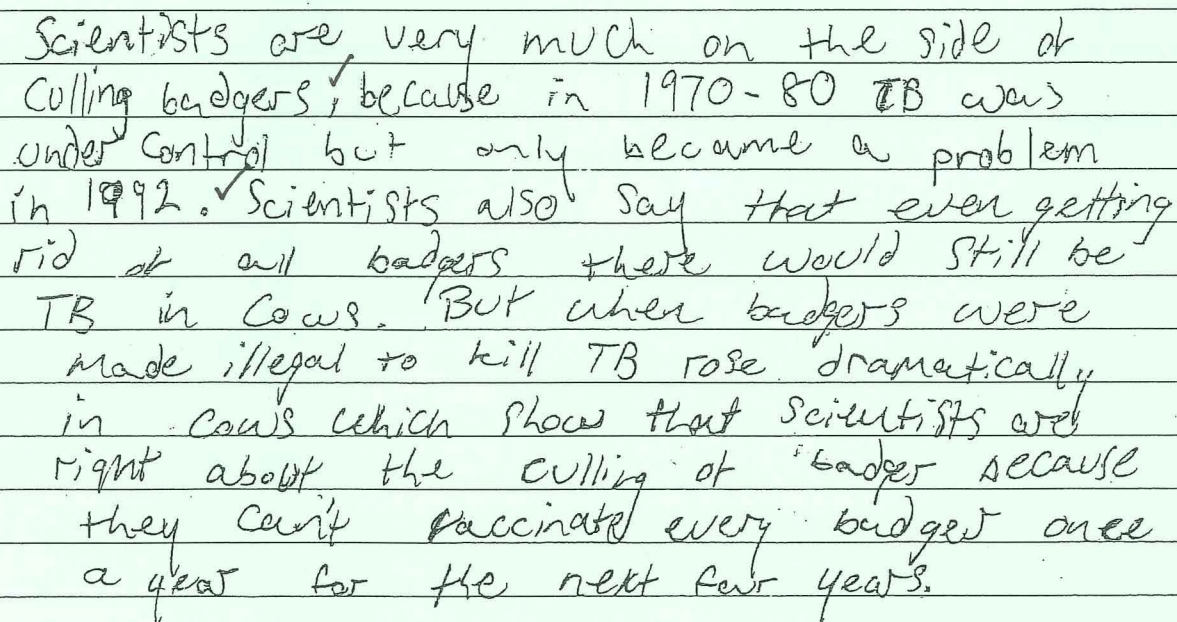 Scientists are very much on the side of
Culling badgers, because in 1970-80 TB was
under control but only became a problem
in 1992. Scientists also say that even getting
rid of all badgers there would still be
TB in Cows. But when badgers were
made illegal to kill TB rose dramatically
in cows which show that scientists are
right about the culling of badger because
they can't vaccinate every badger once
a year for the next four years.